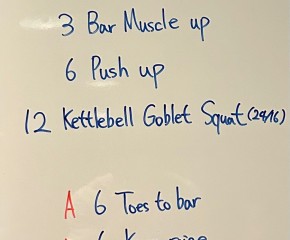 3 Bar Muscle up
6 Push up
12 Kettlebell Goblet Squat (24/16)
A 6 Toes to bar